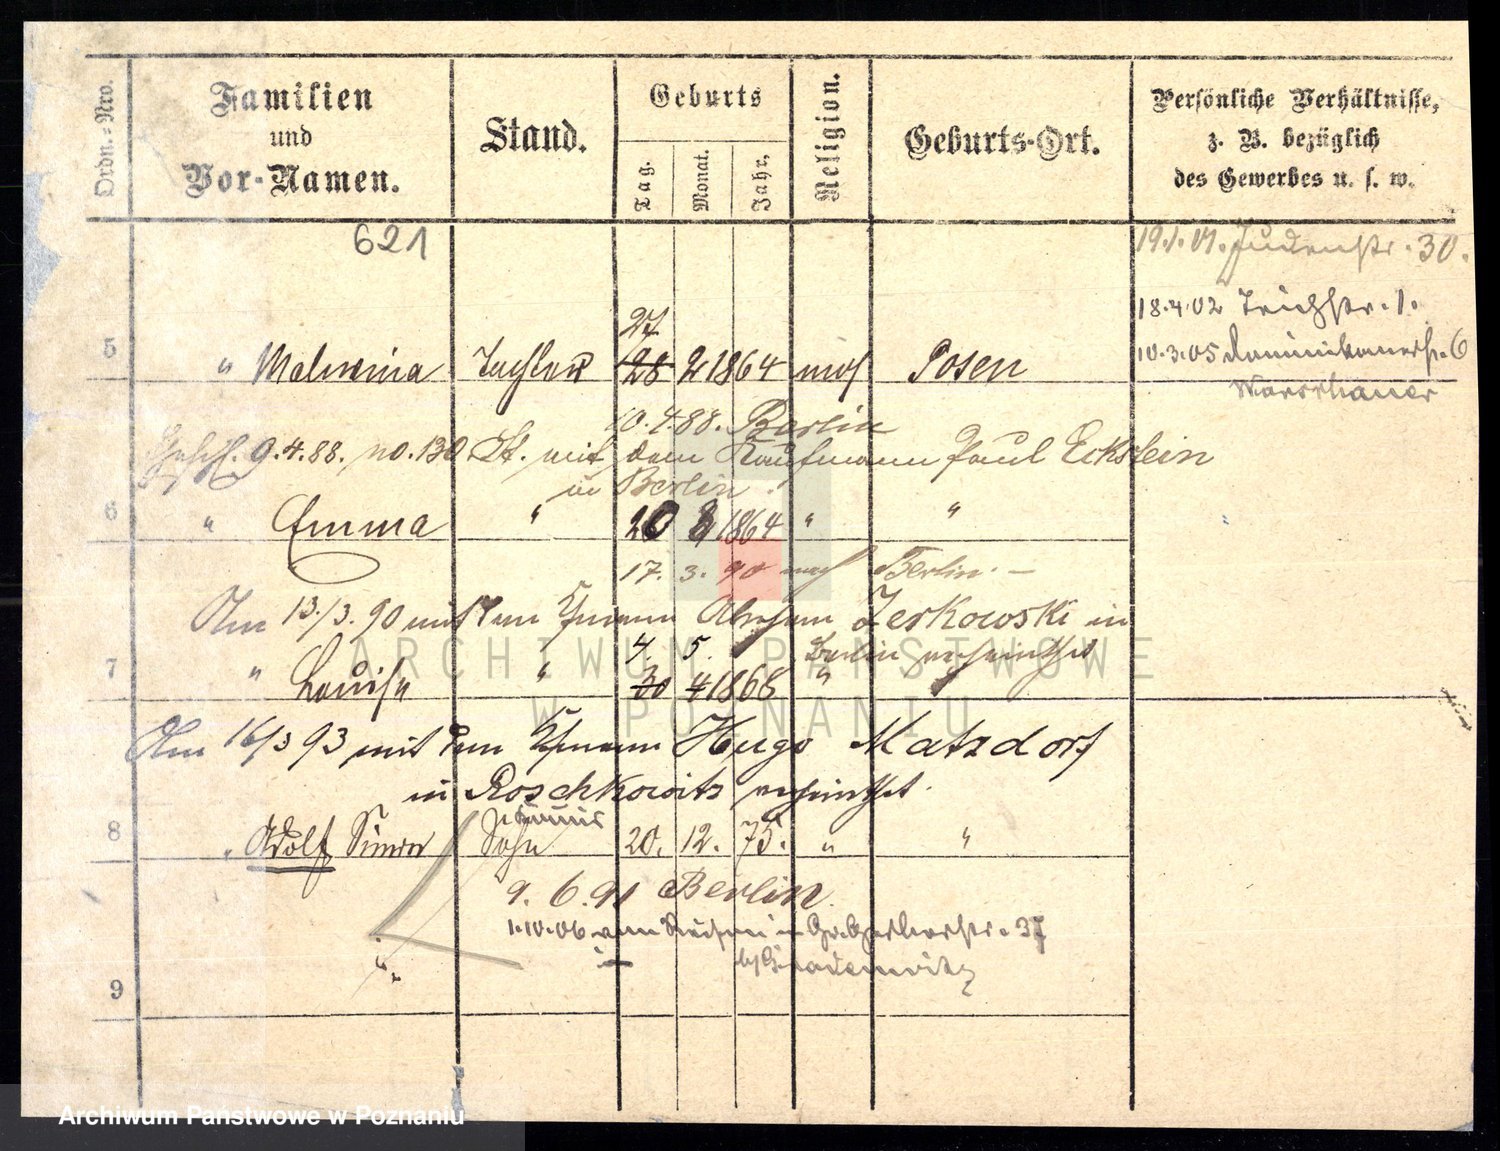 Ordn.-Nro.
Familien
und
Vor-Namen.
Stand.
Geburts
Tag.
Monat.
Jahr,
Religion.
Geburts-Ort.
Persönliche Verhältnisse,
z. B. bezüglich
des Gewerbes u. s. w.
621
19.1.01. Judenstr. 30.
18.4.02 Teichstr. 1.
27
10.3.05 Dominikanerstr. 6
5 " Malwina Tochter 28 2 1864 mos Posen
Warschauer
10.4.88. Berlin
9.4.88. no. 130 St. mit dem Kaufmann Paul Eckstein
in Berlin.
6 " Emma " 20 8 1864 " "
17. 3. 90 nach Berlin. —
Am 13/3. 90 mit dem Kfmann Abraham Zerkowski in
4. 5. Berlin verheirathet
7 " Louise " 30 4 1868 "
Am 16/3 93 mit dem Kfmann Hugo Matzdorf
in Roschkowitz verheirathet.
8 " Adolf Simon Sohn 20. 12. 75. " "
9. 6. 91 Berlin.
1.10.06 von in 37
9
ARCHIWUM PAŃSTWOWE
W POZNANIU
Archiwum Państwowe w Poznaniu